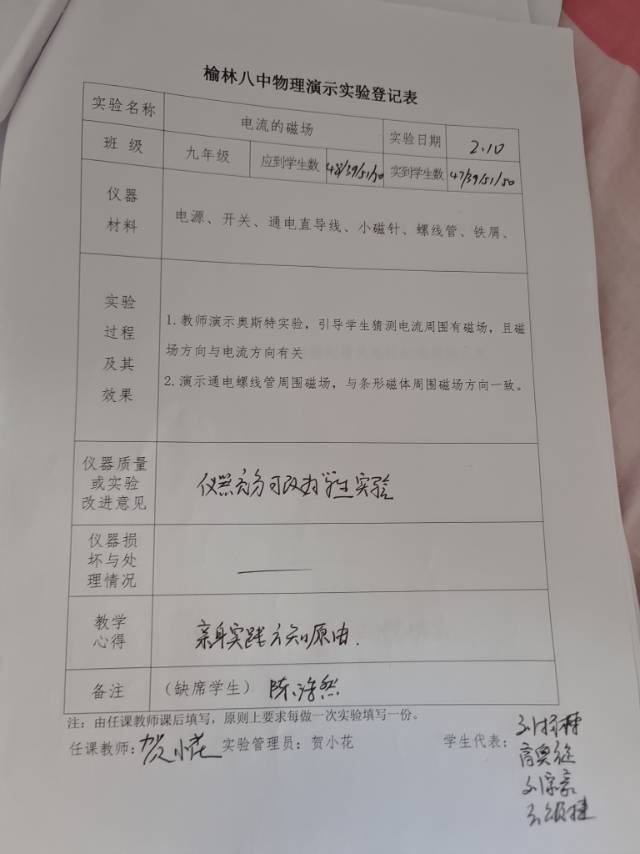 榆林八中物理演示实验登记表
实验名称 电流的磁场 实验日期 2.10
班 级 九年级 应到学生数 48/39/51/50 实到学生数 47/39/51/50
仪器
材料
电源、开关、通电直导线、小磁针、螺线管、铁屑。
实验
过程
及其
效果
1.教师演示奥斯特实验，引导学生猜测电流周围有磁场，且磁
场方向与电流方向有关
2.演示通电螺线管周围磁场，与条形磁体周围磁场方向一致。
仪器质量
或实验
改进意见
仪器充分可改为学生实验
仪器损
坏与处
理情况
教学
心得
亲身实践方知原由.
备注 （缺席学生） 陈浩然
注：由任课教师课后填写，原则上要求每做一次实验填写一份。
任课教师：贺小花 实验管理员：贺小花 学生代表：